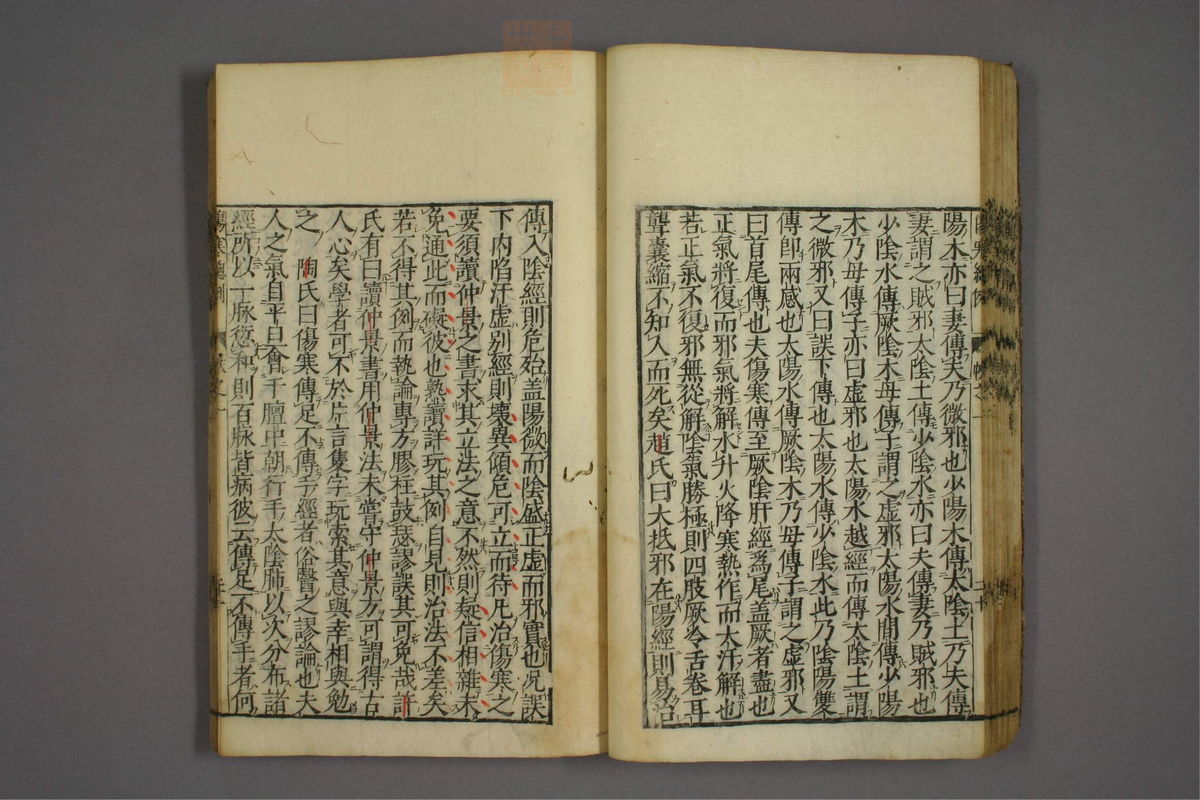 陽木亦曰妻傳夫乃微邪也少陽木傳太陰土乃夫傳
妻謂之賊邪太陰土傳少陰水亦曰夫傳妻乃賊邪也
少陰水傳厥陰木母傳子謂之虛邪太陽水間傳少陽
木乃母傳子亦曰虛邪也太陽水越經而傳太陰土謂
之微邪又曰誤下傳也太陽水傳少陰水此乃陰陽雙
傳即兩感也太陽水傳厥陰木乃母傳子謂之虛邪又
曰首尾傳也夫傷寒傳至厥陰肝經爲尾盖厥者盡也
正氣將復而邪氣將解水升火降寒熱作而大汗解也
若正氣不復邪無從解陰氣勝極則四肢厥冷舌卷耳
聾囊縮不知人而死矣趙氏曰大抵邪在陽經則易治
傳入陰經則危殆盖陽微而陰盛正虛而邪實也况誤
下内陷汗虛别經則壞異傾危可立而待凡治傷寒之
要須讀仲景之書求其立法之意不然則疑信相雜未
免通此而礙彼也熟讀詳玩其例自見則治法不差矣
若不得其例而執論專方膠柱鼓瑟謬誤其可免哉許
氏有曰讀仲景書用仲景法未嘗守仲景方可謂得古
人心矣學者可不於片言隻字玩索其意與幸相與勉
之　陶氏曰傷寒傳足不傳手經者俗醫之謬論也夫
人之氣自平旦會于膻中朝行手太陰肺以次分布諸
經所以一脉愆和則百脉皆病彼云傳足不傳手者何
傷寒總例